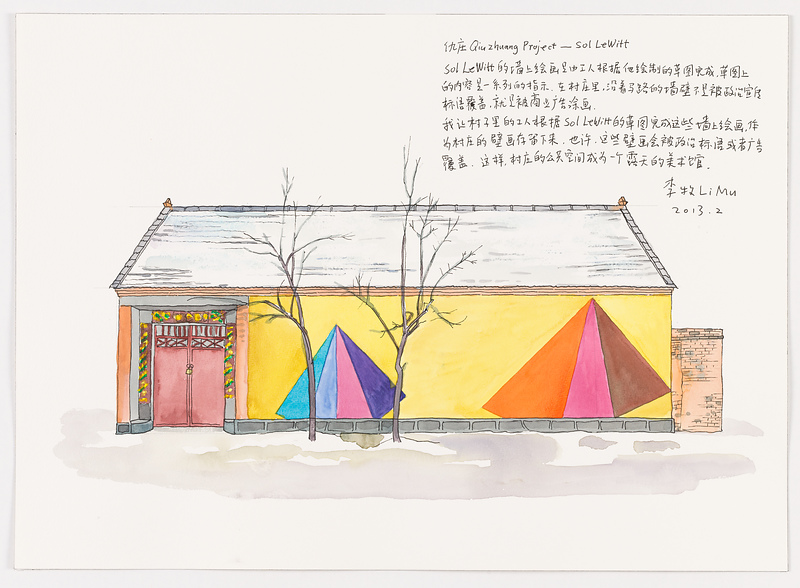 仇庄 Qiuzhuang Project — Sol LeWitt
Sol LeWitt的墙上绘画是由工人根据他绘制的草图完成,草图上
的内容是一系列的指示。在村庄里,沿着马路的墙壁不是被政治宣传
标语覆盖,就是被商业广告涂画。
我让村子里的工人根据Sol LeWitt的草图完成这些墙上绘画,作
为村庄的壁画存留下来,也许,这些壁画会被政治标语或者广告
覆盖。这样,村庄的公共空间成为一个露天的美术馆。
李牧 Li Mu
2013.2